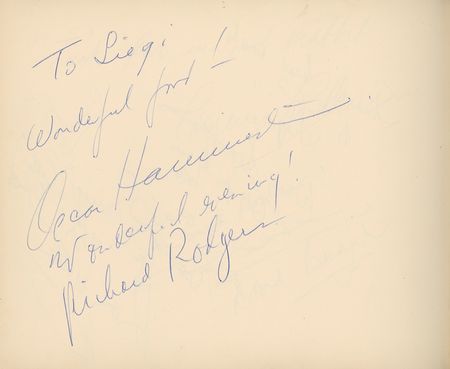 To Siegi
Wonderful food!
Oscar Hammerstein
Wonderful evening!
Richard Rodgers